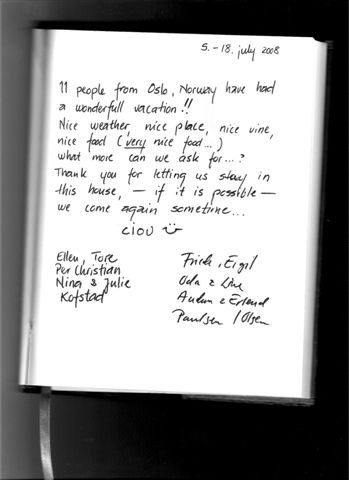 5. - 18. july 2008
11 people from Oslo, Norway have had
a wonderfull vacation!!
Nice weather, nice place, nice vine,
nice food (very nice food...)
what more can we ask for...?
Thank you for letting us stay in
this house, — if it is possible —
we come again sometime...
ciou
Ellen, Tore
Per Christian
Nina & Julie
Kofstad
Eigil
Oda & Line
Audun & Erlend
Paulsen / Olsen